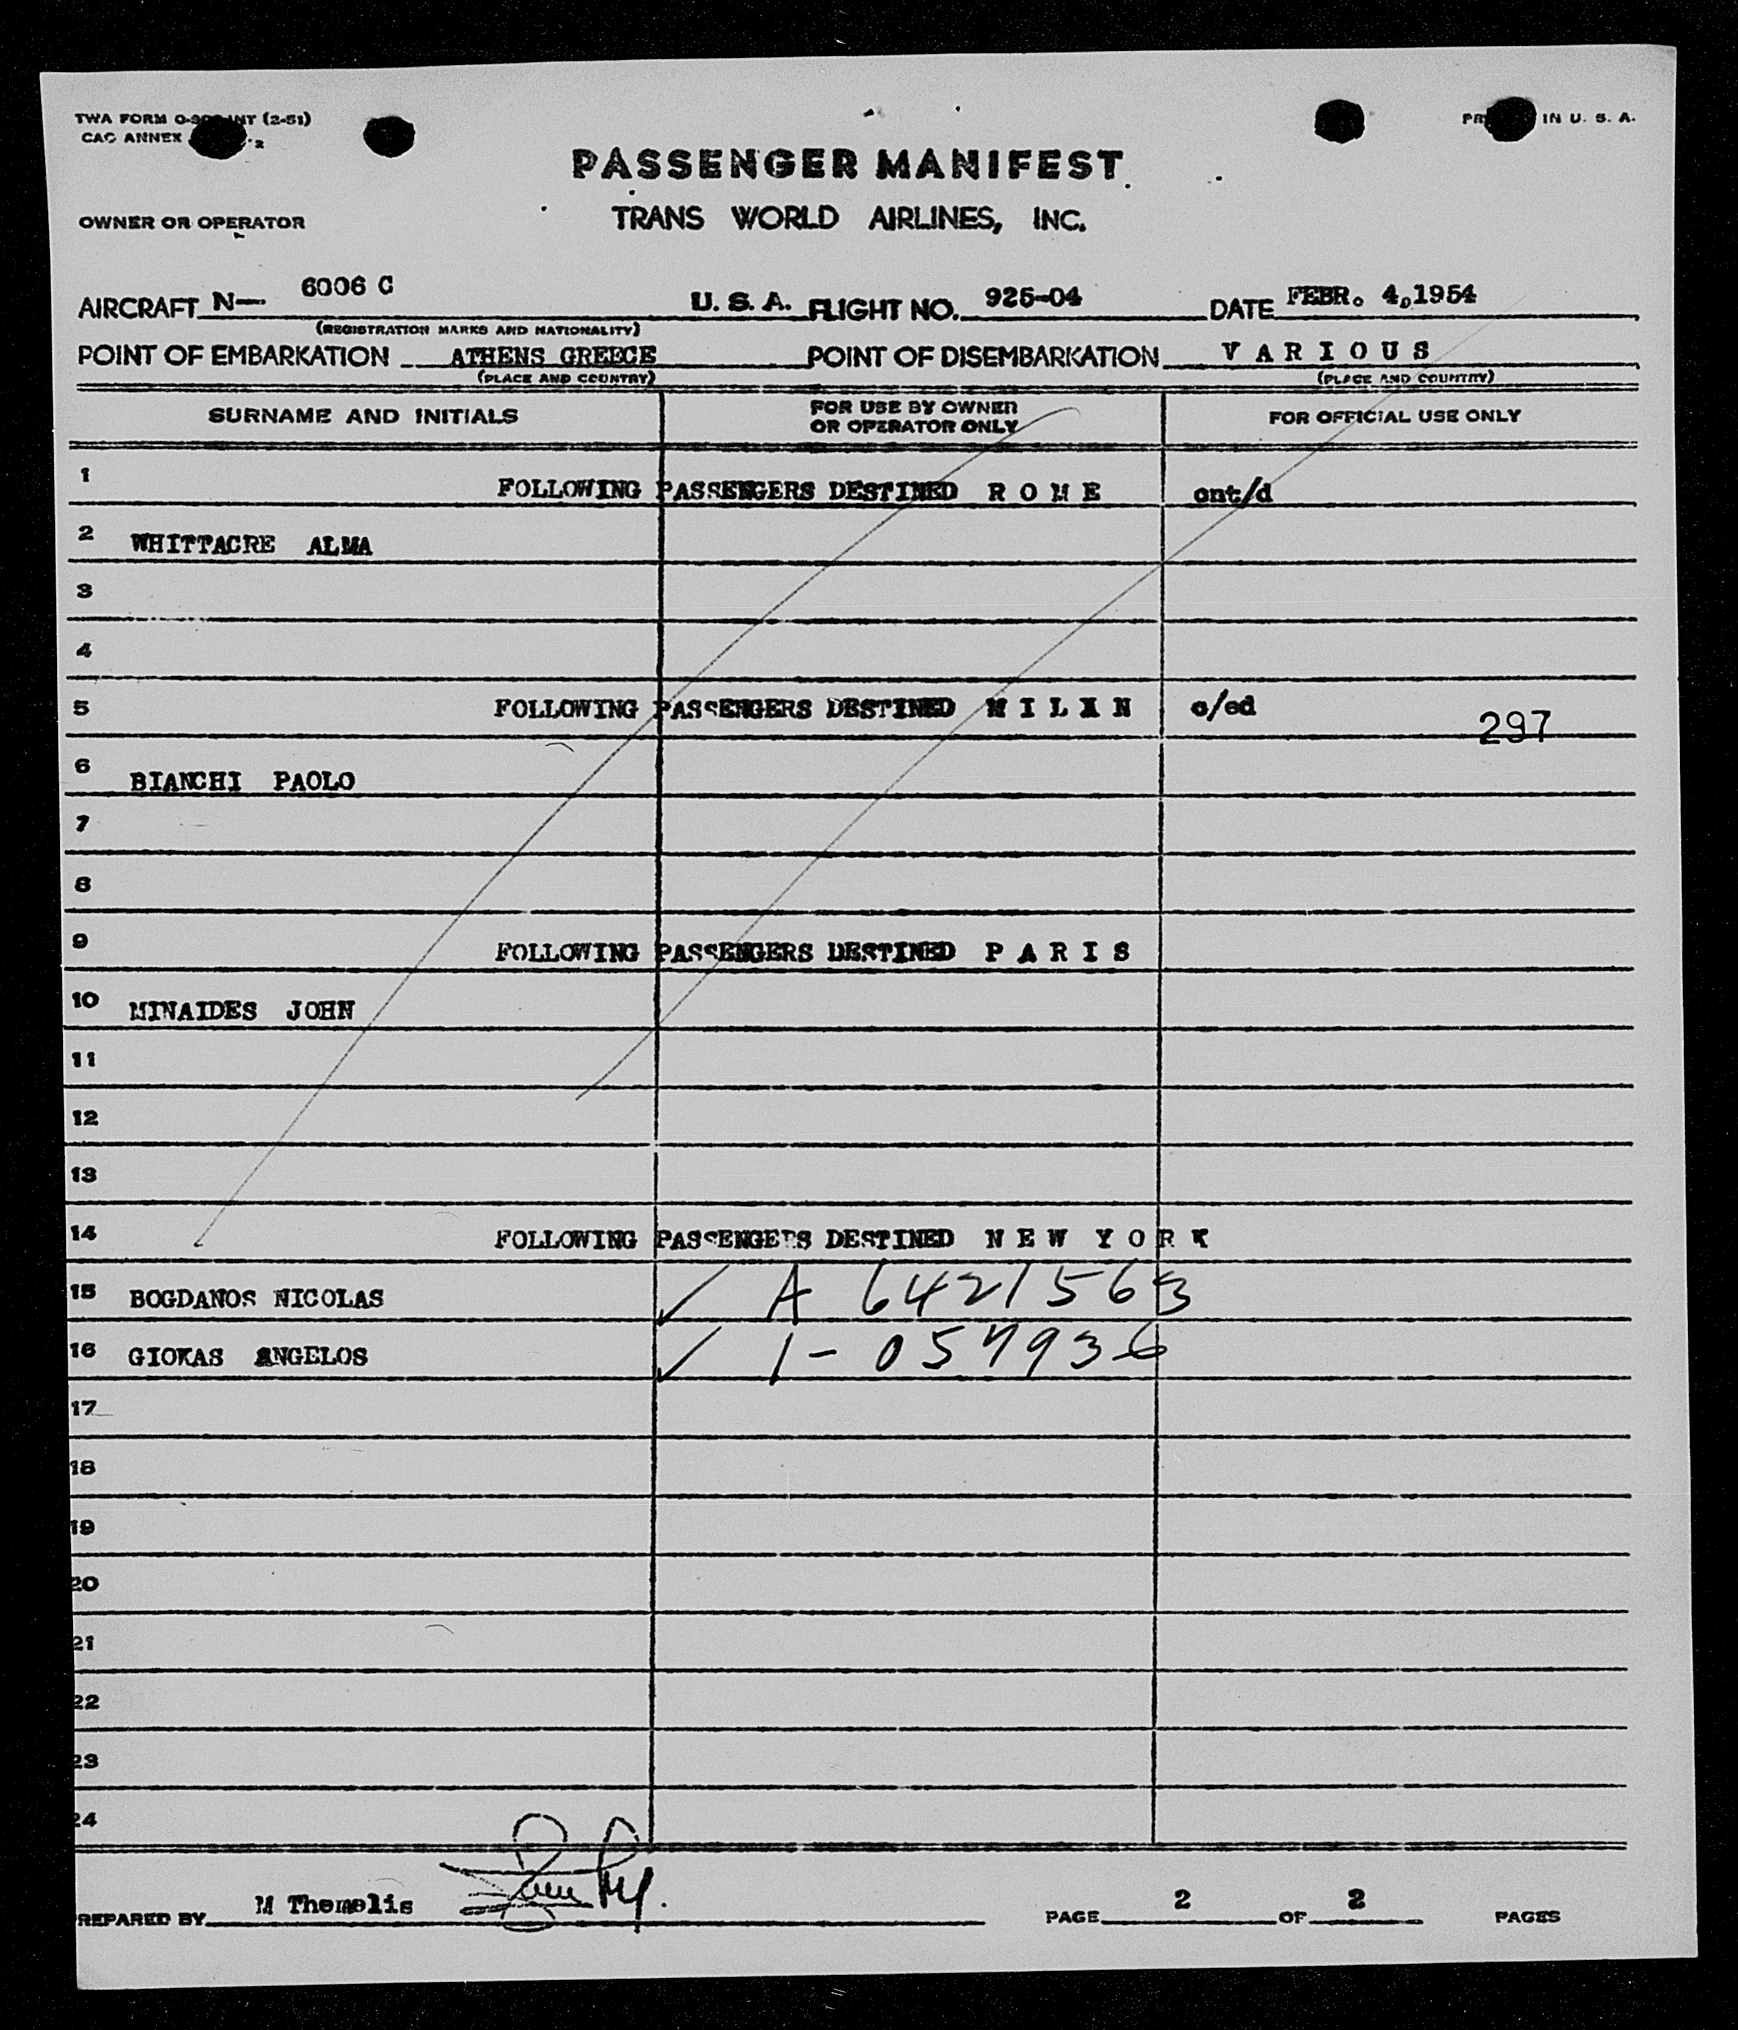 TWA FORM INT (2-51)
PR IN U. S. A.
CAO ANNEX
PASSENGER MANIFEST
OWNER OR OPERATOR
TRANS WORLD AIRLINES, INC.
AIRCRAFT N— 6006 C U. S. A. FLIGHT NO. 925-04 DATE FEBR. 4,1954
(REGISTRATION MARKS AND NATIONALITY)
POINT OF EMBARKATION ATHENS GREECE POINT OF DISEMBARKATION V A R I O U S
(PLACE AND COUNTRY) (PLACE AND COUNTRY)
SURNAME AND INITIALS FOR USE BY OWNER OR OPERATOR ONLY FOR OFFICIAL USE ONLY
1 FOLLOWING PASSENGERS DESTINED R O M E cnt/d
2 WHITTACRE ALMA
3
4
5 FOLLOWING PASSENGERS DESTINED M I L A N c/ed
297
6 BIANCHI PAOLO
7
8
9 FOLLOWING PASSENGERS DESTINED P A R I S
10 MINAIDES JOHN
11
12
13
14 FOLLOWING PASSENGERS DESTINED N E W Y O R K
15 BOGDANOS NICOLAS ✓ A 6421563
16 GIOKAS ANGELOS ✓ 1-057936
17
18
19
20
21
22
23
24
REPARED BY M Themelis PAGE 2 OF 2 PAGES